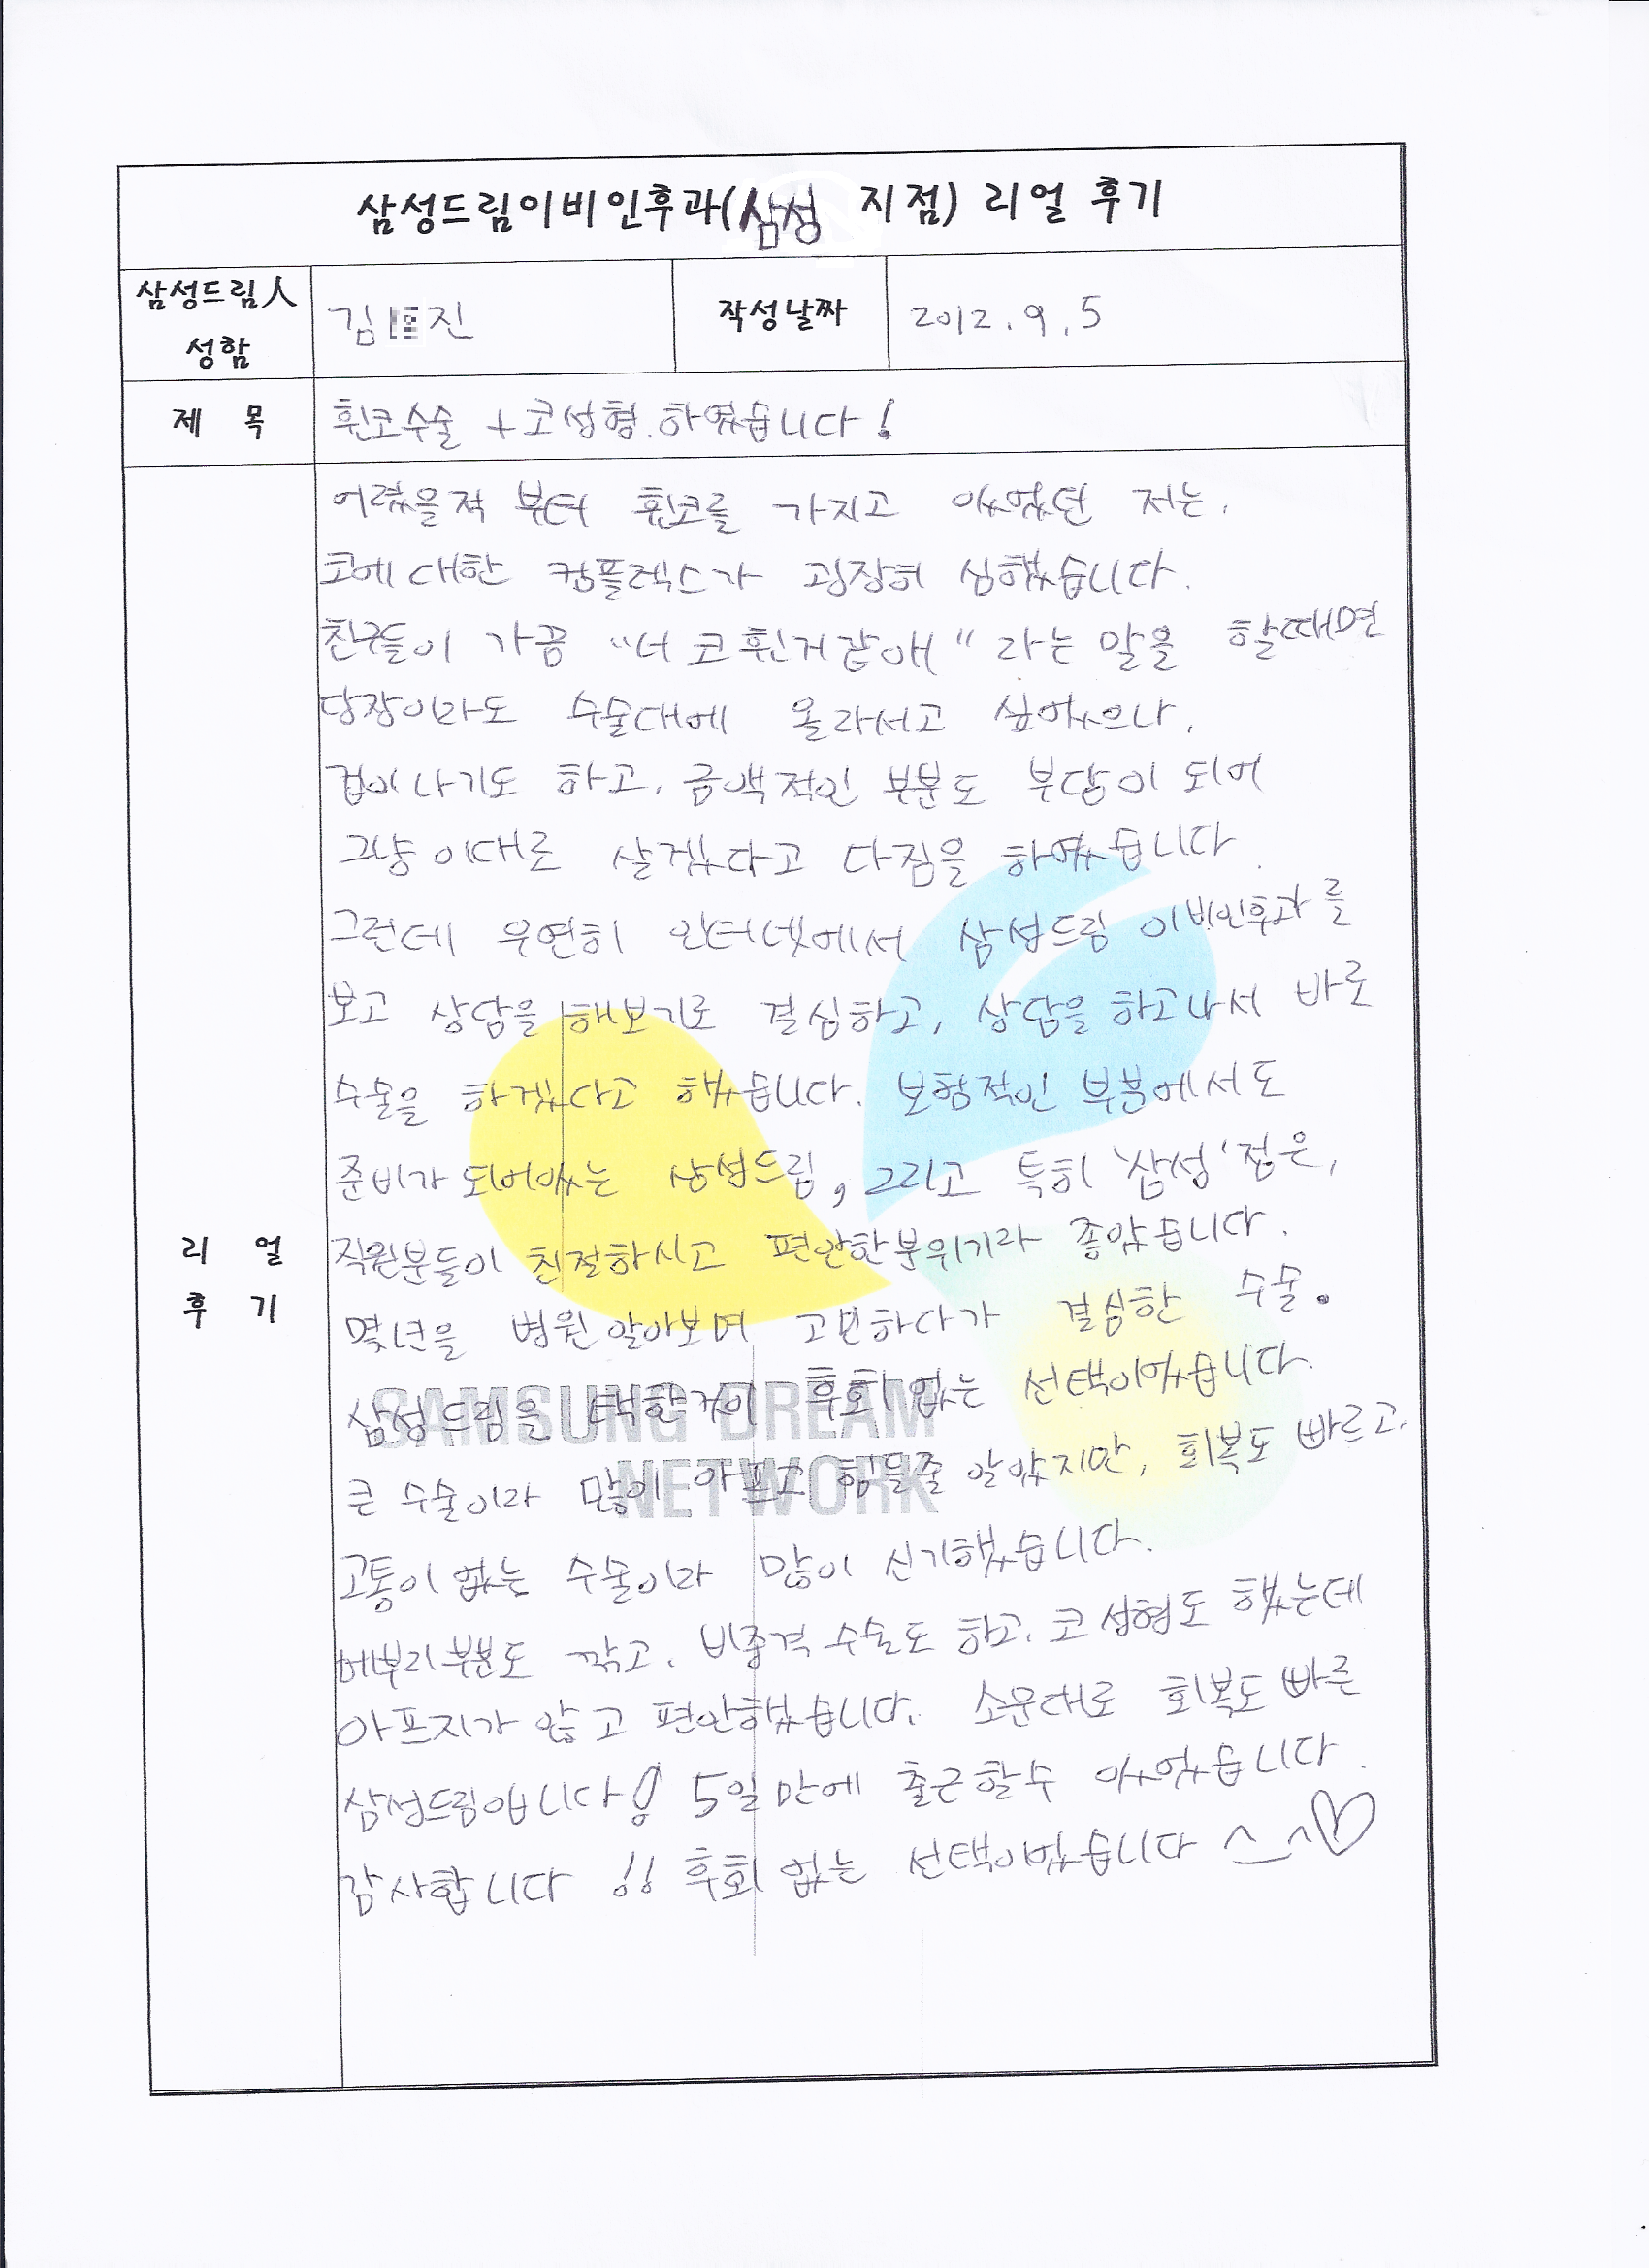 삼성드림이비인후과(삼성 지점) 리얼 후기
삼성드림人 성함
김 진
작성날짜
2012. 9. 5
제 목
휜코수술 + 코성형.하였습니다!
리 얼 후 기
어렸을적 부터 휜코를 가지고 있었던 저는,
코에 대한 컴플렉스가 굉장히 심했습니다.
친구들이 가끔 "너 코 휜거같애" 라는 말을 할때면
당장이라도 수술대에 올라서고 싶었으나,
겁이 나기도 하고, 금액적인 부분도 부담이 되어
그냥 이대로 살겠다고 다짐을 하였습니다.
그런데 우연히 인터넷에서 삼성드림 이비인후과를
보고 상담을 해보기로 결심하고, 상담을 하고나서 바로
수술을 하겠다고 했습니다. 보험적인 부분에서도
준비가 되어있는 삼성드림, 그리고 특히 '삼성'점은,
직원분들이 친절하시고 편안한분위기라 좋았습니다.
몇년을 병원 알아보며 고민하다가 결심한 수술.
삼성드림을 택한거이 후회 없는 선택이었습니다.
큰 수술이라 많이 아프고 힘들줄 알았지만, 회복도 빠르고,
고통이 없는 수술이라 많이 신기했습니다.
메부리부분도 깎고, 비중격 수술도 하고, 코 성형도 했는데
아프지가 않고 편안했습니다. 소문대로 회복도 빠른
삼성드림입니다! 5일만에 출근할수 있었습니다.
감사합니다 !! 후회 없는 선택이었습니다 ^_^♡
SAMSUNG DREAM
NETWORK